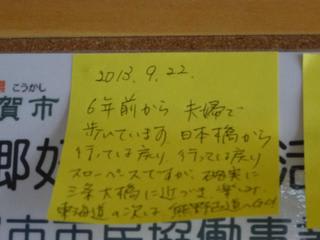 こうかし
賀市
2013.9.22.
6年前から 夫婦で
歩いています。日本橋から
行っては戻り 行っては戻り
スローペースですが、確実に
三条大橋に近づき 楽しみ。
東海道の次は 熊野古道へGO!
郷
活
市民協働事業